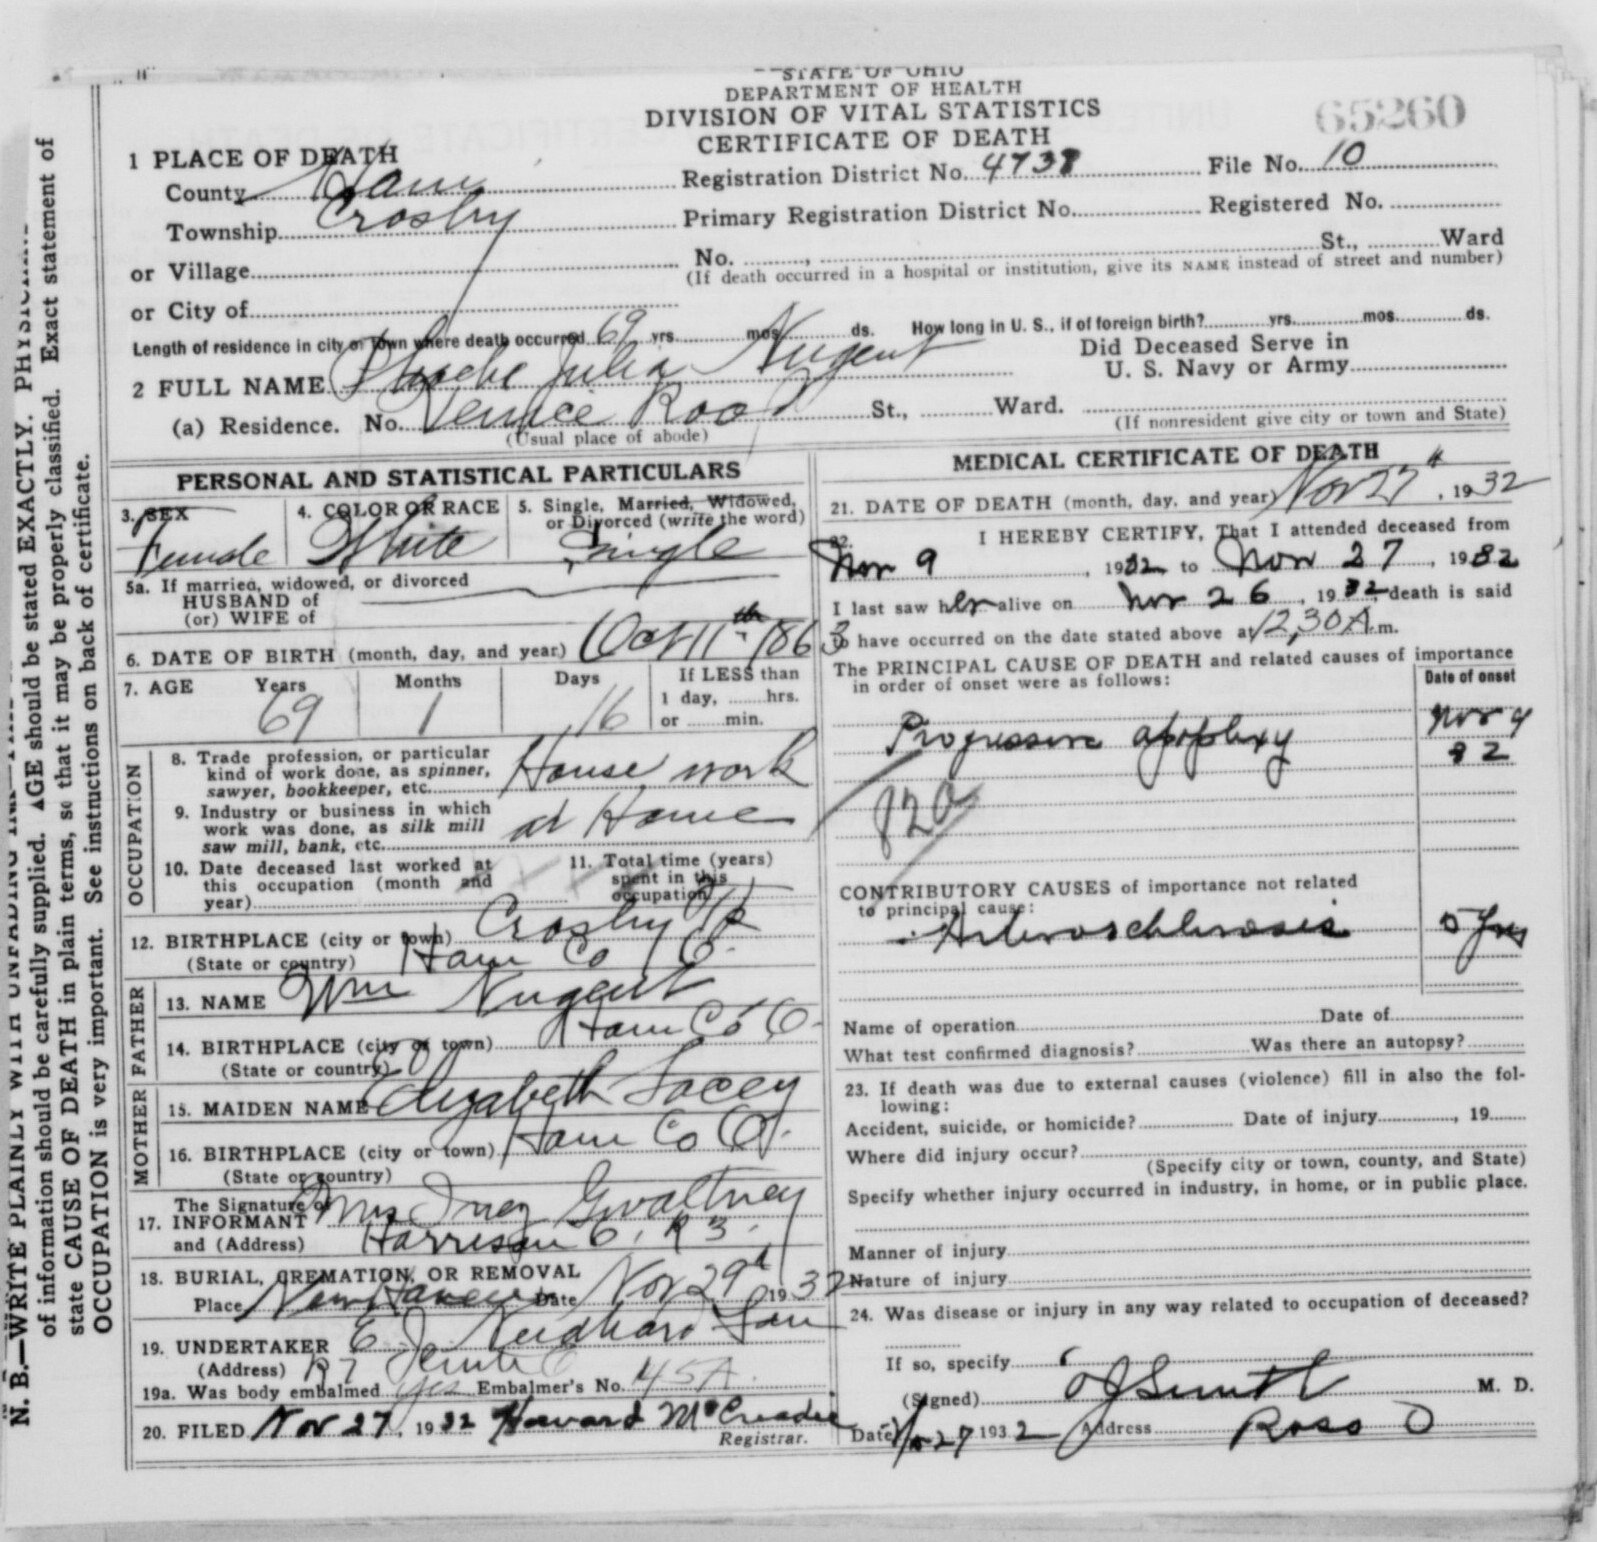 STATE OF OHIO
DEPARTMENT OF HEALTH
DIVISION OF VITAL STATISTICS
CERTIFICATE OF DEATH
65260
1 PLACE OF DEATH
County Ham Registration District No. 4738 File No. 10
Township Crosby Primary Registration District No. Registered No.
or Village No. , St., Ward
(If death occurred in a hospital or institution, give its NAME instead of street and number)
or City of
Length of residence in city or town where death occurred 69 yrs. mos. ds. How long in U. S., if of foreign birth? yrs. mos. ds.
2 FULL NAME Phoebe Julia Nugent Did Deceased Serve in
U. S. Navy or Army
(a) Residence. No. Venice Road St., Ward.
(Usual place of abode) (If nonresident give city or town and State)
PERSONAL AND STATISTICAL PARTICULARS
3. SEX 4. COLOR OR RACE 5. Single, Married, Widowed,
or Divorced (write the word)
Female White Single
5a. If married, widowed, or divorced
HUSBAND of
(or) WIFE of
6. DATE OF BIRTH (month, day, and year) Oct 11th 1863
7. AGE Years Months Days If LESS than
1 day, hrs.
or min.
69 1 16
OCCUPATION
8. Trade profession, or particular
kind of work done, as spinner,
sawyer, bookkeeper, etc. House work
9. Industry or business in which
work was done, as silk mill
saw mill, bank, etc. at Home
10. Date deceased last worked at
this occupation (month and
year)
11. Total time (years)
spent in this
occupation
12. BIRTHPLACE (city or town) Crosby Tp
(State or country) Ham Co O.
FATHER
13. NAME Wm Nugent
14. BIRTHPLACE (city or town) Ham Co O.
(State or country) O
MOTHER
15. MAIDEN NAME Elizabeth Lacey
16. BIRTHPLACE (city or town) Ham Co O.
(State or country)
The Signature of
17. INFORMANT Mrs Inez Gwaltney
and (Address) Harrison O. R 3.
18. BURIAL, CREMATION, OR REMOVAL
Place New Haven Date Nov 29th 1932
19. UNDERTAKER E J Neidhard Son
(Address) R 7
19a. Was body embalmed yes Embalmer's No. 45A
20. FILED Nov 27, 1932 Howard McCreadie
Registrar.
MEDICAL CERTIFICATE OF DEATH
21. DATE OF DEATH (month, day, and year) Nov 27th, 1932
22. I HEREBY CERTIFY, That I attended deceased from
Nov 9, 1932 to Nov 27, 1932
I last saw her alive on Nov 26, 1932, death is said
to have occurred on the date stated above at 12,30 A.m.
The PRINCIPAL CAUSE OF DEATH and related causes of importance
in order of onset were as follows:
Date of onset
Progressive apoplexy Nov 9
32
82a
CONTRIBUTORY CAUSES of importance not related
to principal cause:
Arterioschlerosis 5 yrs
Name of operation Date of
What test confirmed diagnosis? Was there an autopsy?
23. If death was due to external causes (violence) fill in also the fol-
lowing:
Accident, suicide, or homicide? Date of injury , 19
Where did injury occur?
(Specify city or town, county, and State)
Specify whether injury occurred in industry, in home, or in public place.
Manner of injury
Nature of injury
24. Was disease or injury in any way related to occupation of deceased?
If so, specify
(Signed) O J Smith M. D.
Date Nov 27 1932 Address Ross O
N. B.—WRITE PLAINLY WITH UNFADING INK
of information should be carefully supplied. AGE should be stated EXACTLY. PHYSICIANS
state CAUSE OF DEATH in plain terms, so that it may be properly classified. Exact statement of
OCCUPATION is very important. See instructions on back of certificate.